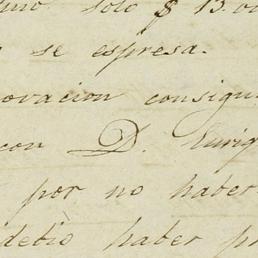 solo $ 13.00
se espresa.
ovacion consigu
con D. Enriq
por no haber
debió haber p